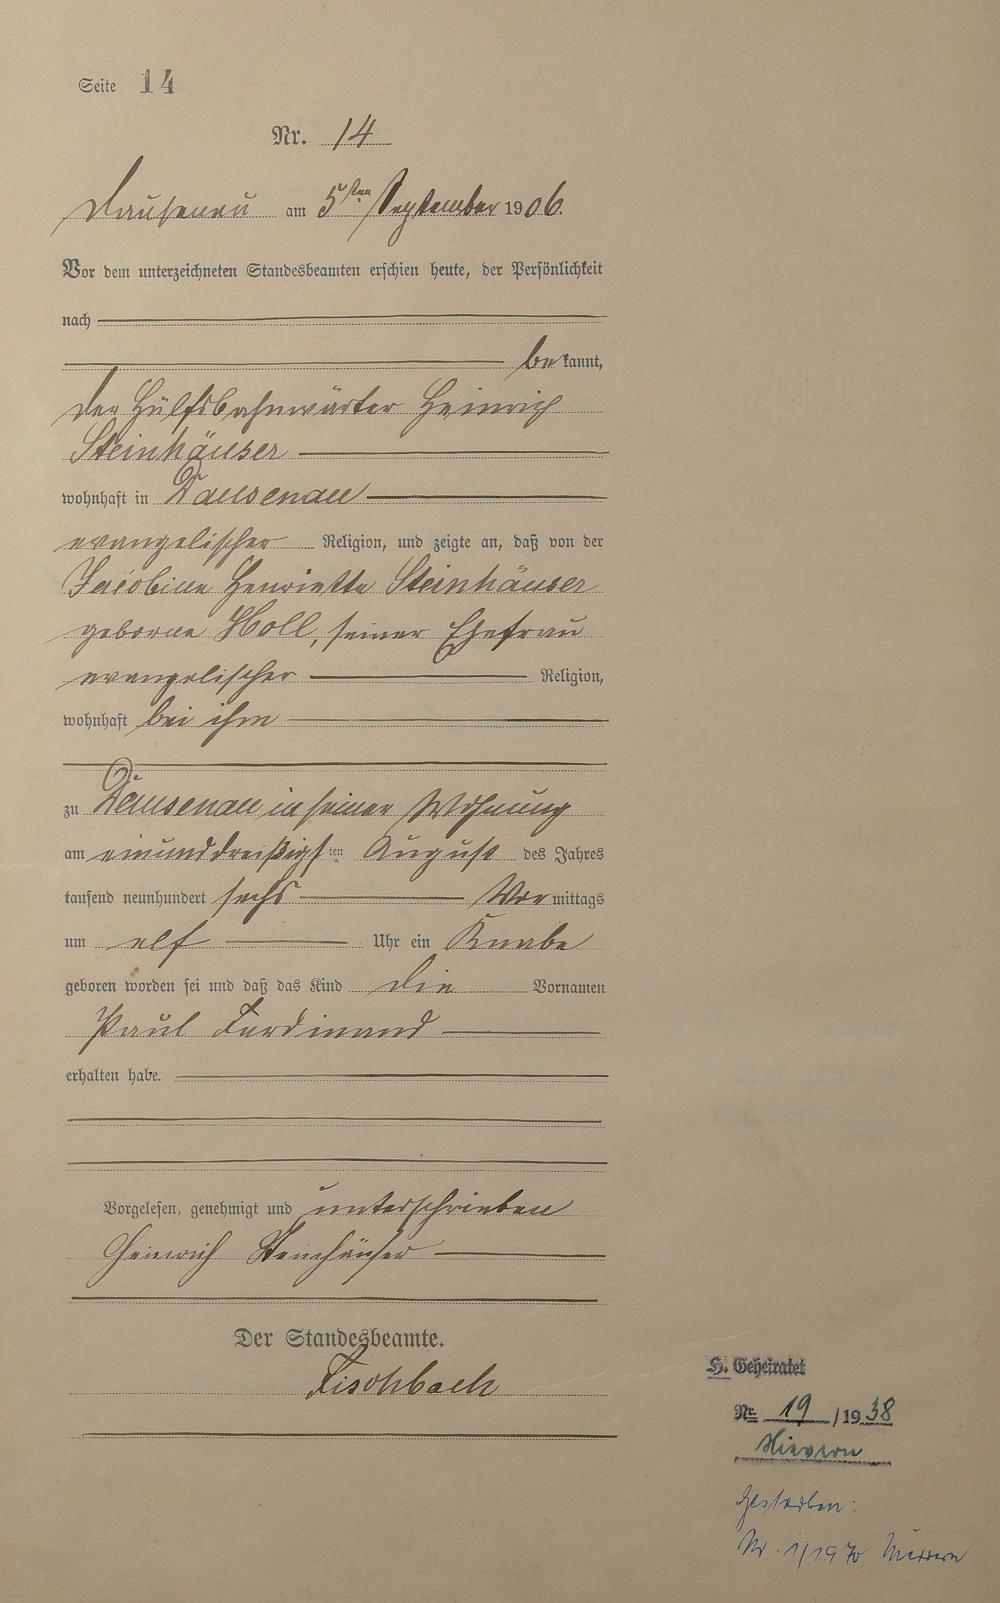 Seite 14
Nr. 14
Dausenau am 5ten September 1906.
Vor dem unterzeichneten Standesbeamten erschien heute, der Persönlichkeit
nach
bekannt,
der Hülfsbahnwärter Heinrich
Steinhäuser
wohnhaft in Dausenau
evangelischer Religion, und zeigte an, daß von der
Jacobine Henriette Steinhäuser
geborne Holl, seiner Ehefrau
evangelischer Religion,
wohnhaft bei ihm
zu Dausenau in seiner Wohnung
am einunddreißigsten August des Jahres
tausend neunhundert sechs Vormittags
um elf Uhr ein Knabe
geboren worden sei und daß das Kind die Vornamen
Paul Ferdinand
erhalten habe.
Vorgelesen, genehmigt und unterschrieben
Heinrich Steinhäuser
Der Standesbeamte.
Fischbach
H. Geheiratet
Nr. 19/1938
Nievern
Gestorben:
Nr. 1/1970